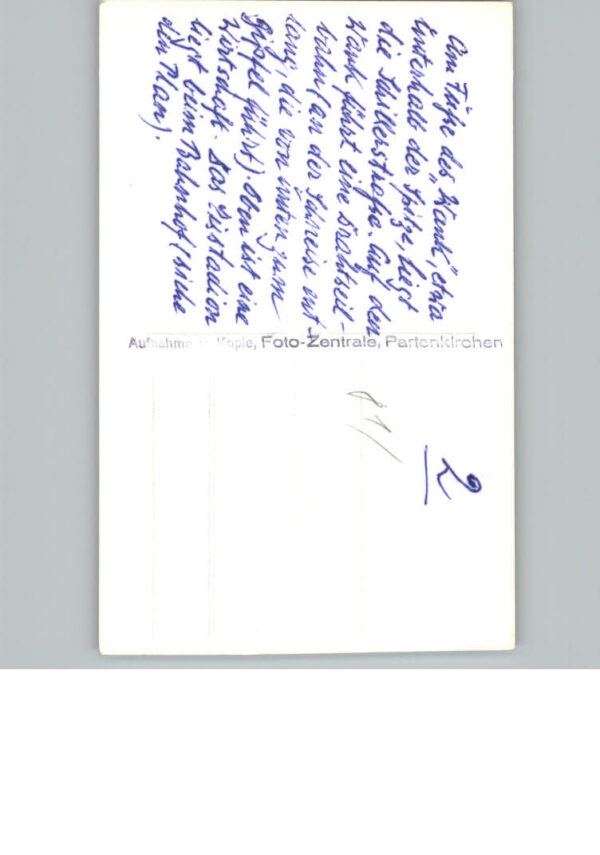 Am Fuße des „Wank“, etwa
unterhalb der Spitze, liegt
die Schillerstraße. Auf den
Wank führt eine Drahtseil-
bahn (an der Schneise ent-
lang, die von unten zum
Gipfel führt). Oben ist eine
Wirtschaft. Das Eisstadion
liegt beim Bahnhof (siehe
den Plan).
Aufnahme u. Kopie, Foto-Zentrale, Partenkirchen
2